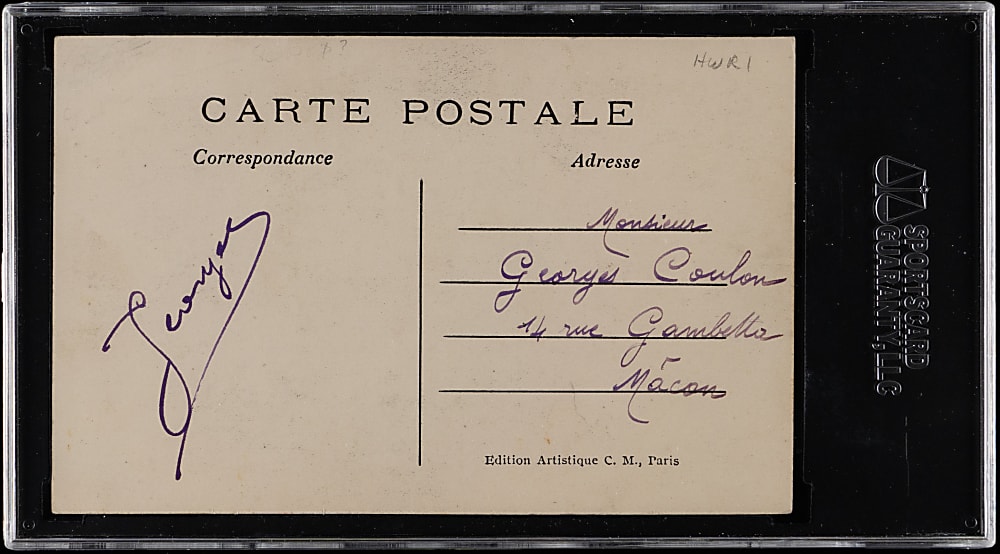 HWR1
CARTE POSTALE
Correspondance
Adresse
Georges
Monsieur
Georges Coulon
14 rue Gambetta
Mâcon
Edition Artistique C. M., Paris
SPORTSCARD
GUARANTY, LLC